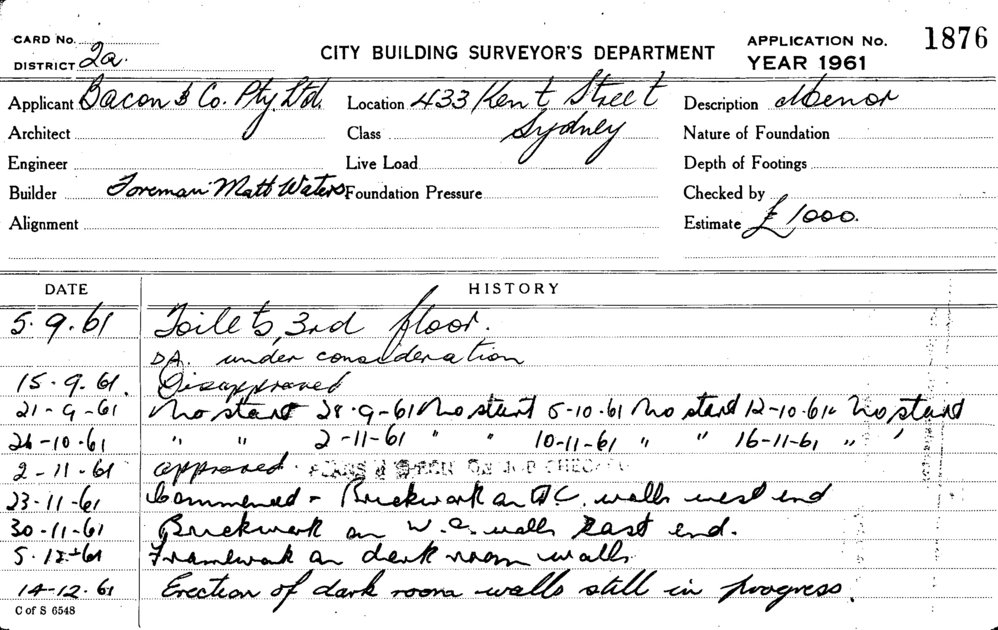 CARD No.
DISTRICT 2a.
CITY BUILDING SURVEYOR'S DEPARTMENT
APPLICATION No. 1876
YEAR 1961
Applicant Bacon & Co. Pty Ltd. Location 433 Kent Street Description Menor
Architect Class Sydney Nature of Foundation
Engineer Live Load Depth of Footings
Builder Foreman Matt Waters Foundation Pressure Checked by
Alignment Estimate £1000.
DATE HISTORY
5.9.61 Toilets, 3rd floor.
DA. under consideration
15.9.61. Disapproved
21-9-61 No start 28.9-61 No start 5-10.61 No start 12-10.61 No start
26-10.61 " " 2-11-61 " " 10-11-61 " " 16-11-61 " "
2-11-61 approved. ON JOB CHECKED
23-11-61 Commenced - Brickwork on W.C. walls west end
30-11-61 Brickwork on W.C. walls East end.
5.12.61 Framework on dark room walls
14-12.61 Erection of dark room walls still in progress.
C of S 6548